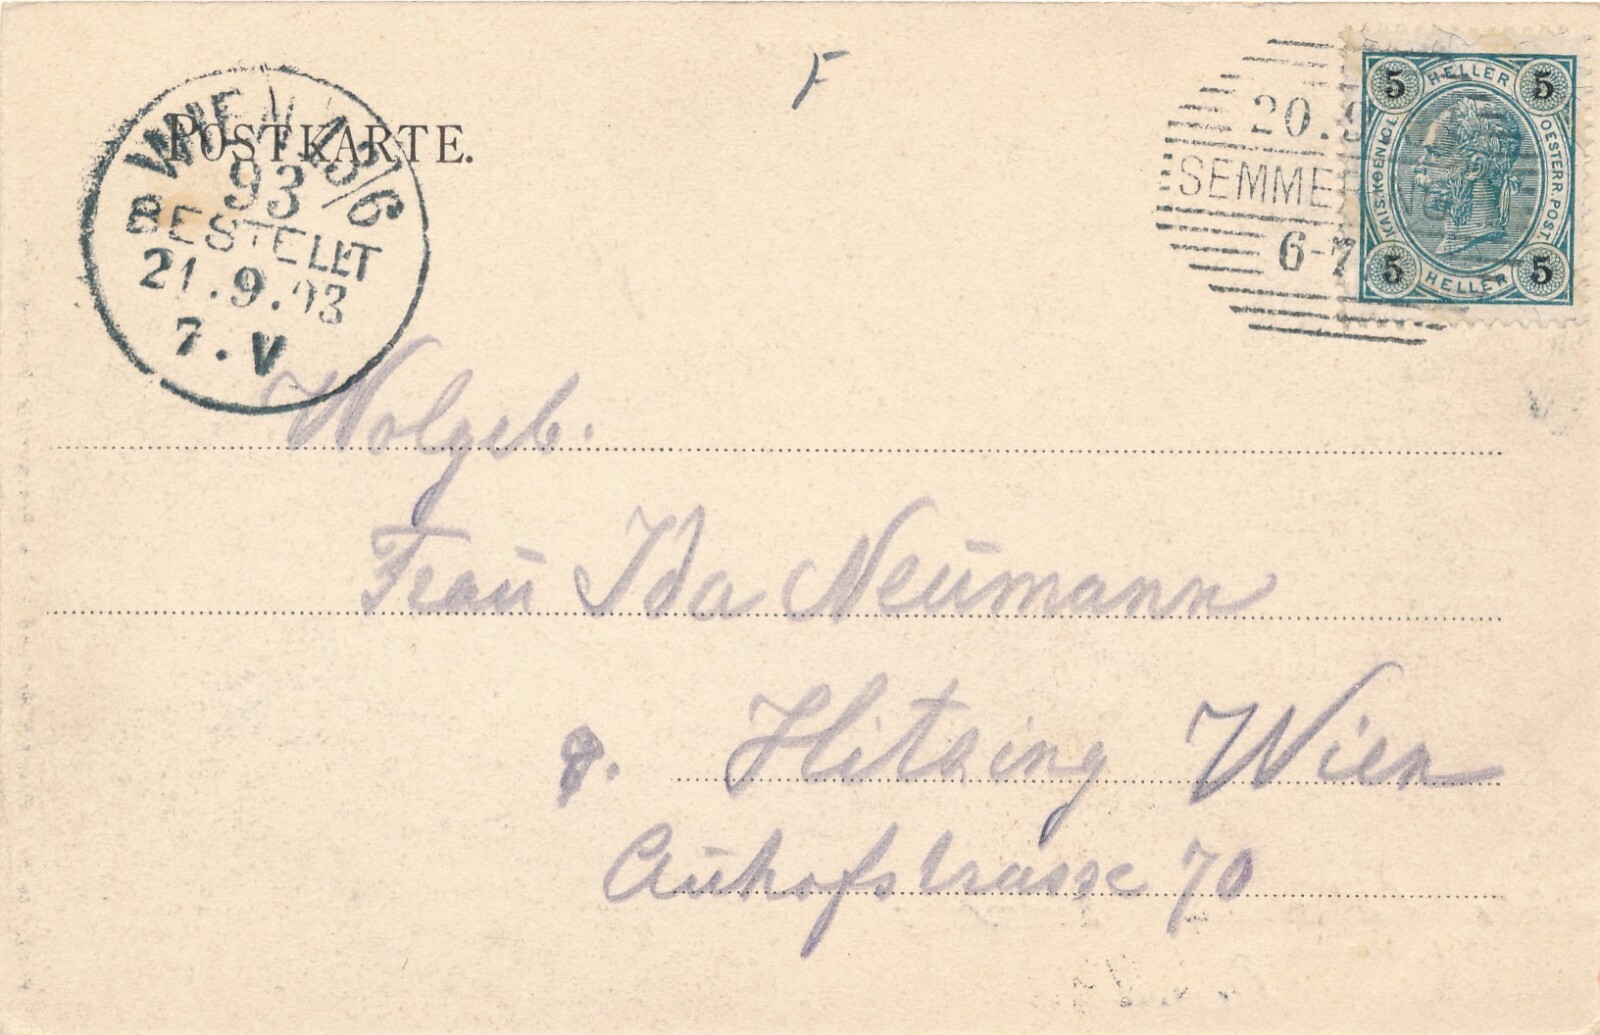 F
POSTKARTE.
WIEN 13/6
93
BESTELLT
21.9.03
7.V
20.9
SEMMERING
6-7
5 HELLER 5
KAIS. KOENIGL.
OESTERR. POST.
5 HELLER 5
Wolgeb.
Fraū Ida Neūmann
Hitzing Wien
Aūhofstrasse 70